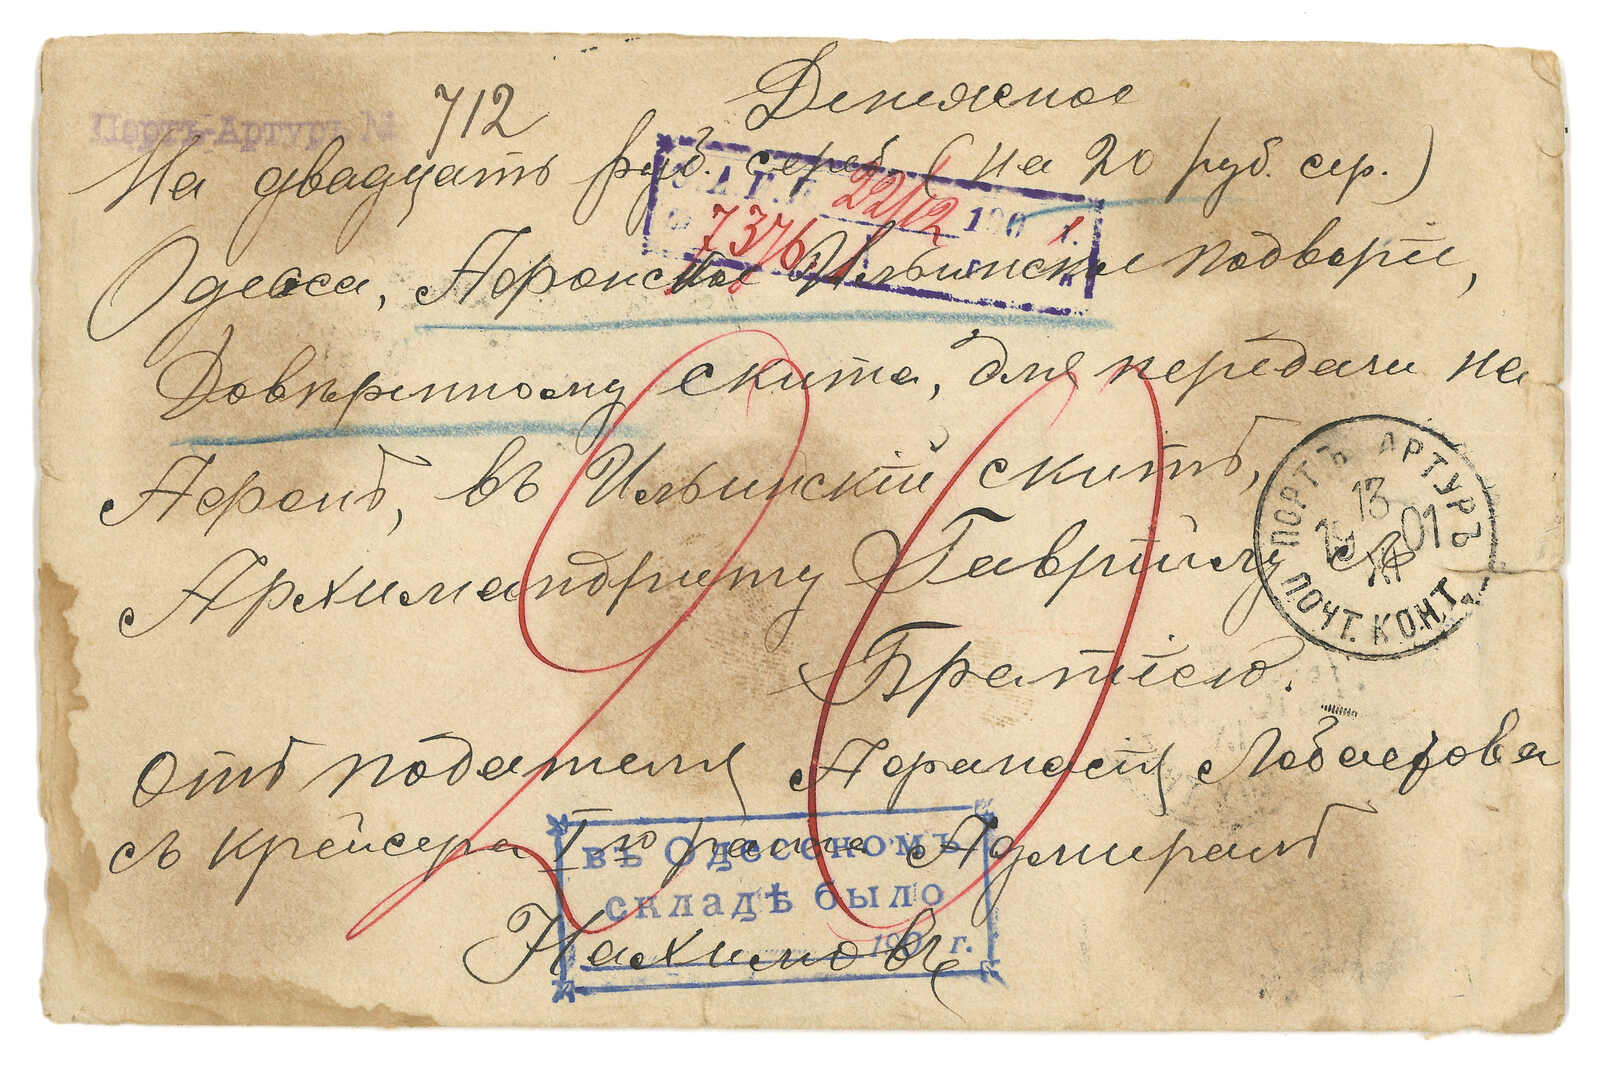 712 Денежное
Портъ-Артуръ №
На двадцать руб. сереб. (на 20 руб. сер.)
22/12 190 1 г.
7376
Одесса, Афонское Ильинское подворіе,
Довѣренному скита, для передачи на
Афонъ, въ Ильинскій скитъ,
Архимандриту Гавріилу съ
Братіею.
20
ПОРТЪ АРТУРЪ
13
XI
19 01
ПОЧТ. КОНТ.
Отъ подателя Афанасія
съ крейсера I го ранга Адмиралъ
Нахимовъ
въ Одесскомъ
складѣ было
190 г.